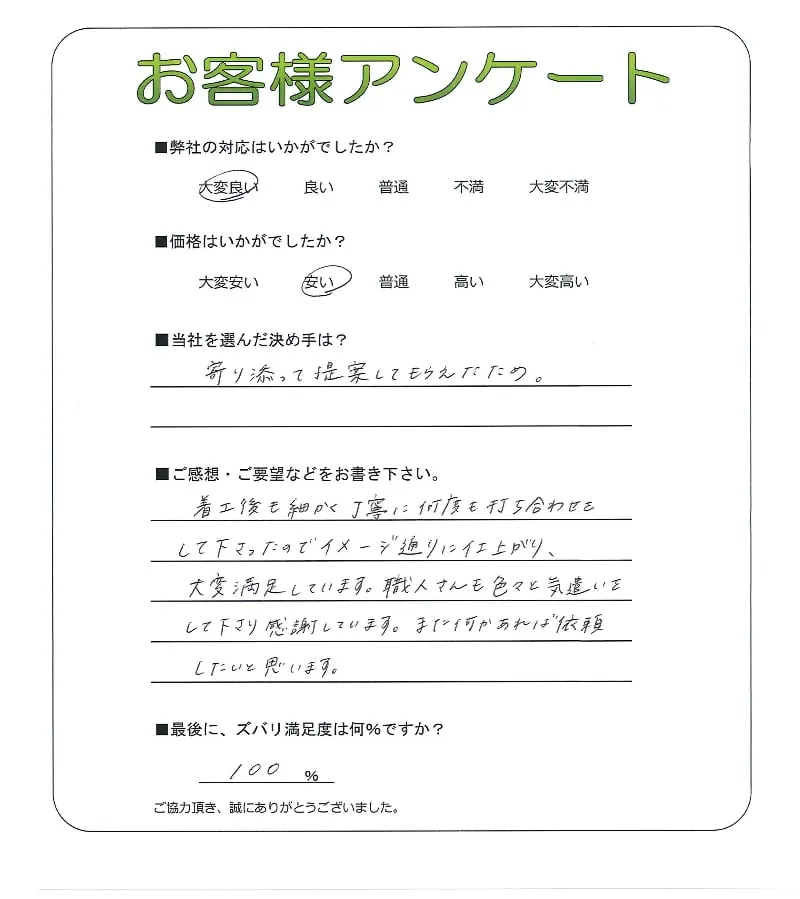 お客様アンケート
■弊社の対応はいかがでしたか？
大変良い 良い 普通 不満 大変不満
■価格はいかがでしたか？
大変安い 安い 普通 高い 大変高い
■当社を選んだ決め手は？
寄り添って提案してもらえたため。
■ご感想・ご要望などをお書き下さい。
着工後も細かく丁寧に何度も打ち合わせを
して下さったのでイメージ通りに仕上がり、
大変満足しています。職人さんも色々と気遣いを
して下さり感謝しています。また何かあれば依頼
したいと思います。
■最後に、ズバリ満足度は何%ですか？
100 %
ご協力頂き、誠にありがとうございました。